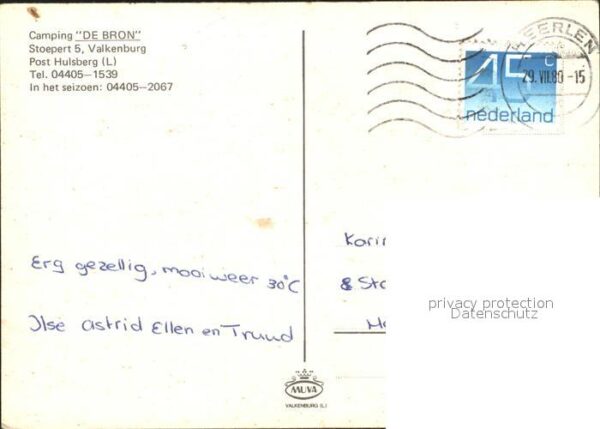 Camping "DE BRON"
Stoepert 5, Valkenburg
Post Hulsberg (L)
Tel. 04405-1539
In het seizoen: 04405-2067
HEERLEN
29. VII.80 -15
45 c
nederland
Erg gezellig, mooi weer 30°C
Ilse astrid Ellen en Truud
Karin
& Sta
privacy protection
Datenschutz
MUVA
VALKENBURG (L.)